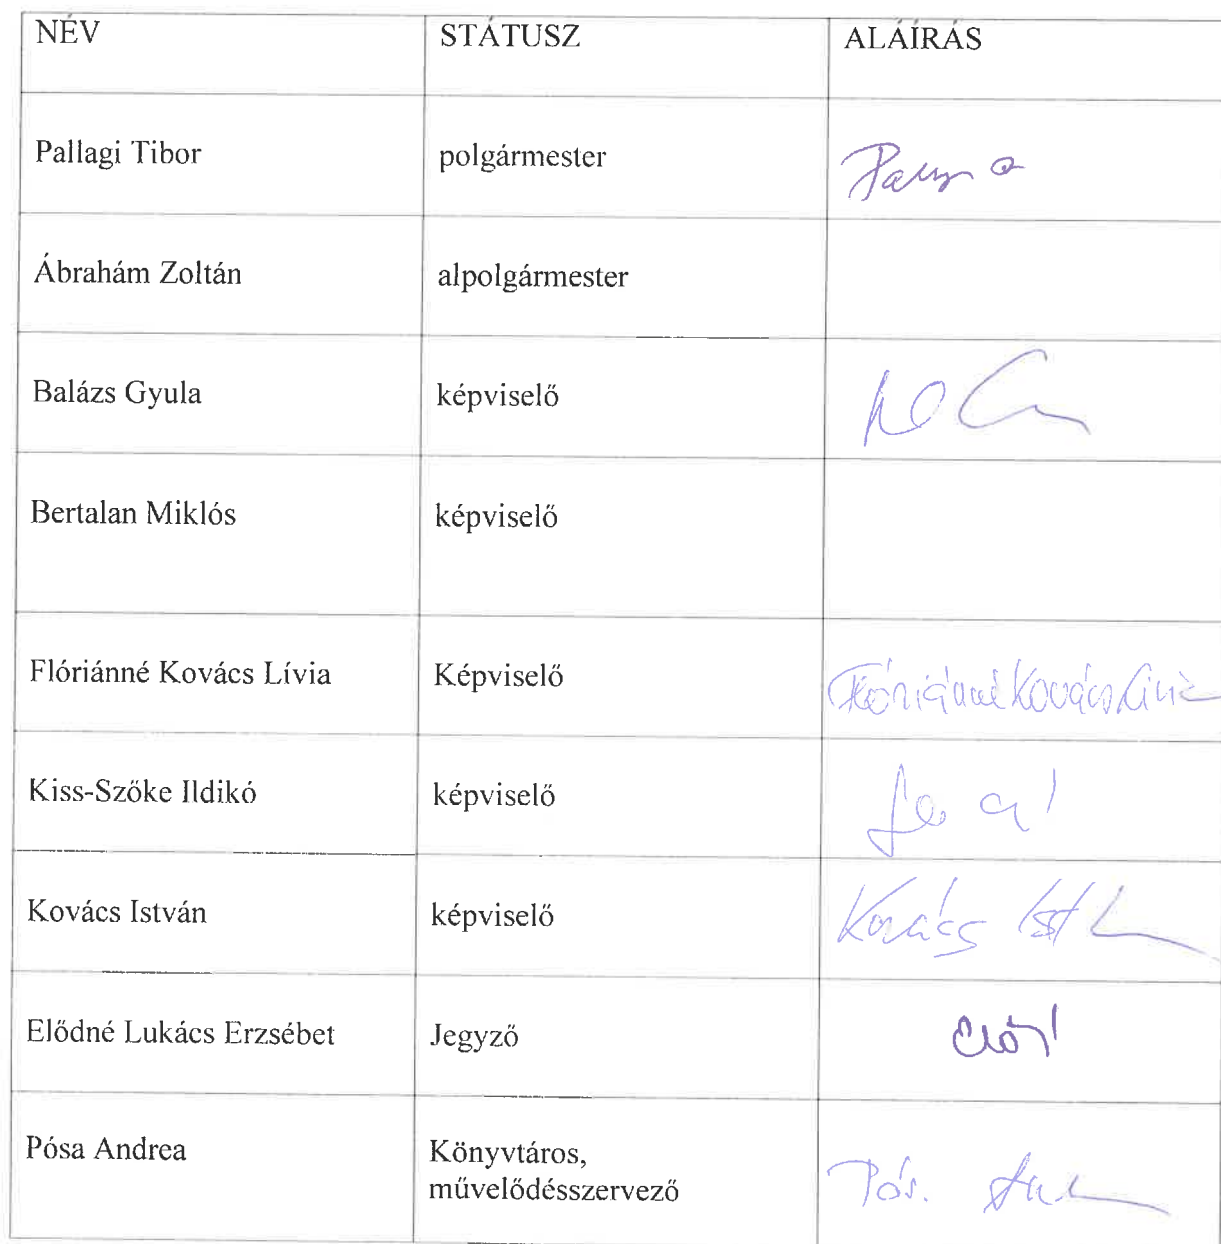 NÉV STÁTUSZ ALÁÍRÁS
Pallagi Tibor polgármester
Ábrahám Zoltán alpolgármester
Balázs Gyula képviselő
Bertalan Miklós képviselő
Flóriánné Kovács Lívia Képviselő Flóriánné Kovács Lívia
Kiss-Szőke Ildikó képviselő
Kovács István képviselő Kovács
Elődné Lukács Erzsébet Jegyző
Pósa Andrea Könyvtáros,
művelődésszervező